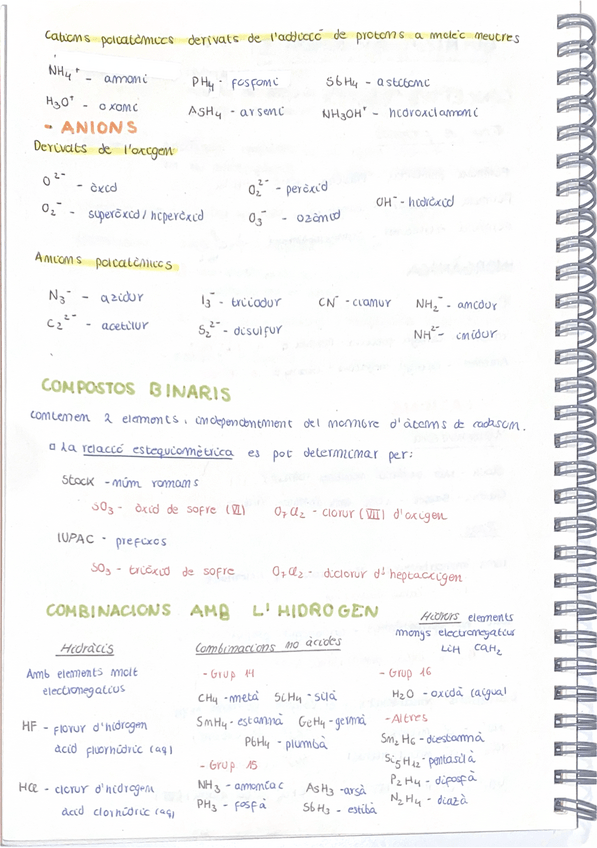 Cations poliatòmics derivats de l'addició de protons a molèc neutres
NH₄⁺ - amoni PH₄ - fosfoni SbH₄ - estiboni
H₃O⁺ - oxoni AsH₄ - arsoni NH₃OH⁺ - hidroxilamoni
- ANIONS
Derivats de l'oxigen
O²⁻ - òxid O₂²⁻ - peròxid OH⁻ - hidròxid
O₂⁻ - superòxid / hiperòxid O₃⁻ - ozònid
Anions poliatòmics
N₃⁻ - azidur I₃⁻ - triiodur CN⁻ - cianur NH₂⁻ - amidur
C₂²⁻ - acetilur S₂²⁻ - disulfur NH²⁻ - imidur
COMPOSTOS BINARIS
contenen 2 elements, independentment del nombre d'àtoms de cadascun.
La relació estequiomètrica es pot determinar per:
Stock - núm romans
SO₃ - òxid de sofre (VI) O₇Cl₂ - clorur (VII) d'oxigen
IUPAC - prefixos
SO₃ - triòxid de sofre O₇Cl₂ - diclorur d'heptaoxigen
COMBINACIONS AMB L'HIDROGEN
Hidrurs elements
menys electronegatius
LiH CaH₂
Hidràcids
Amb elements molt
electronegatius
HF - florur d'hidrogen
àcid fluorhídric (aq)
HCl - clorur d'hidrogen
àcid clorhídric (aq)
Combinacions no àcides
- Grup 14
CH₄ - metà SiH₄ - silà
SnH₄ - estannà GeH₄ - germà
PbH₄ - plumbà
- Grup 15
NH₃ - amoníac AsH₃ - arsà
PH₃ - fosfà SbH₃ - estibà
- Grup 16
H₂O - oxidà (aigua)
- Altres
Sn₂H₆ - diestannà
Si₅H₁₂ - pentasilà
P₂H₄ - difosfà
N₂H₄ - diazà